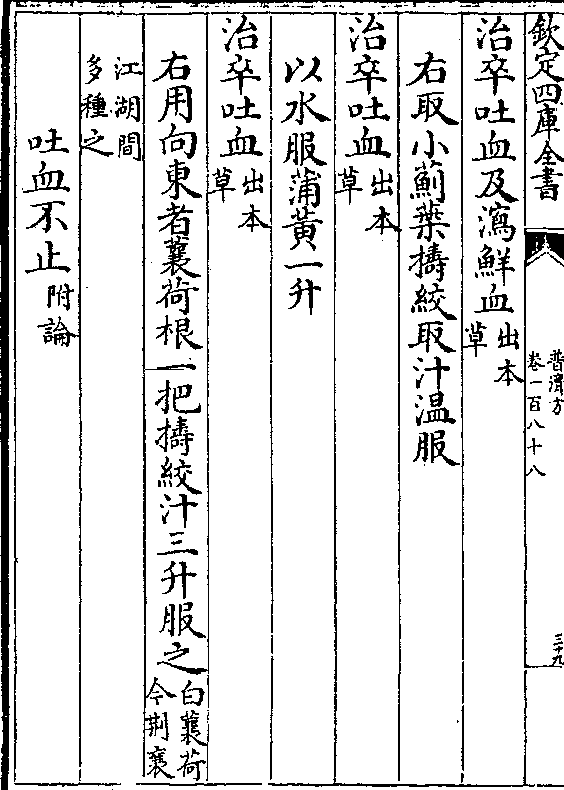 欽定四庫全書
普濟方
卷一百八十八
三十九
治卒吐血及瀉鮮血出本草
右取小薊葉擣絞取汁温服
治卒吐血出本草
以水服蒲黄一升
治卒吐血出本草
右用向東者蘘荷根一把擣絞汁三升服之白蘘荷今荆襄
江湖間多種之
吐血不止附論